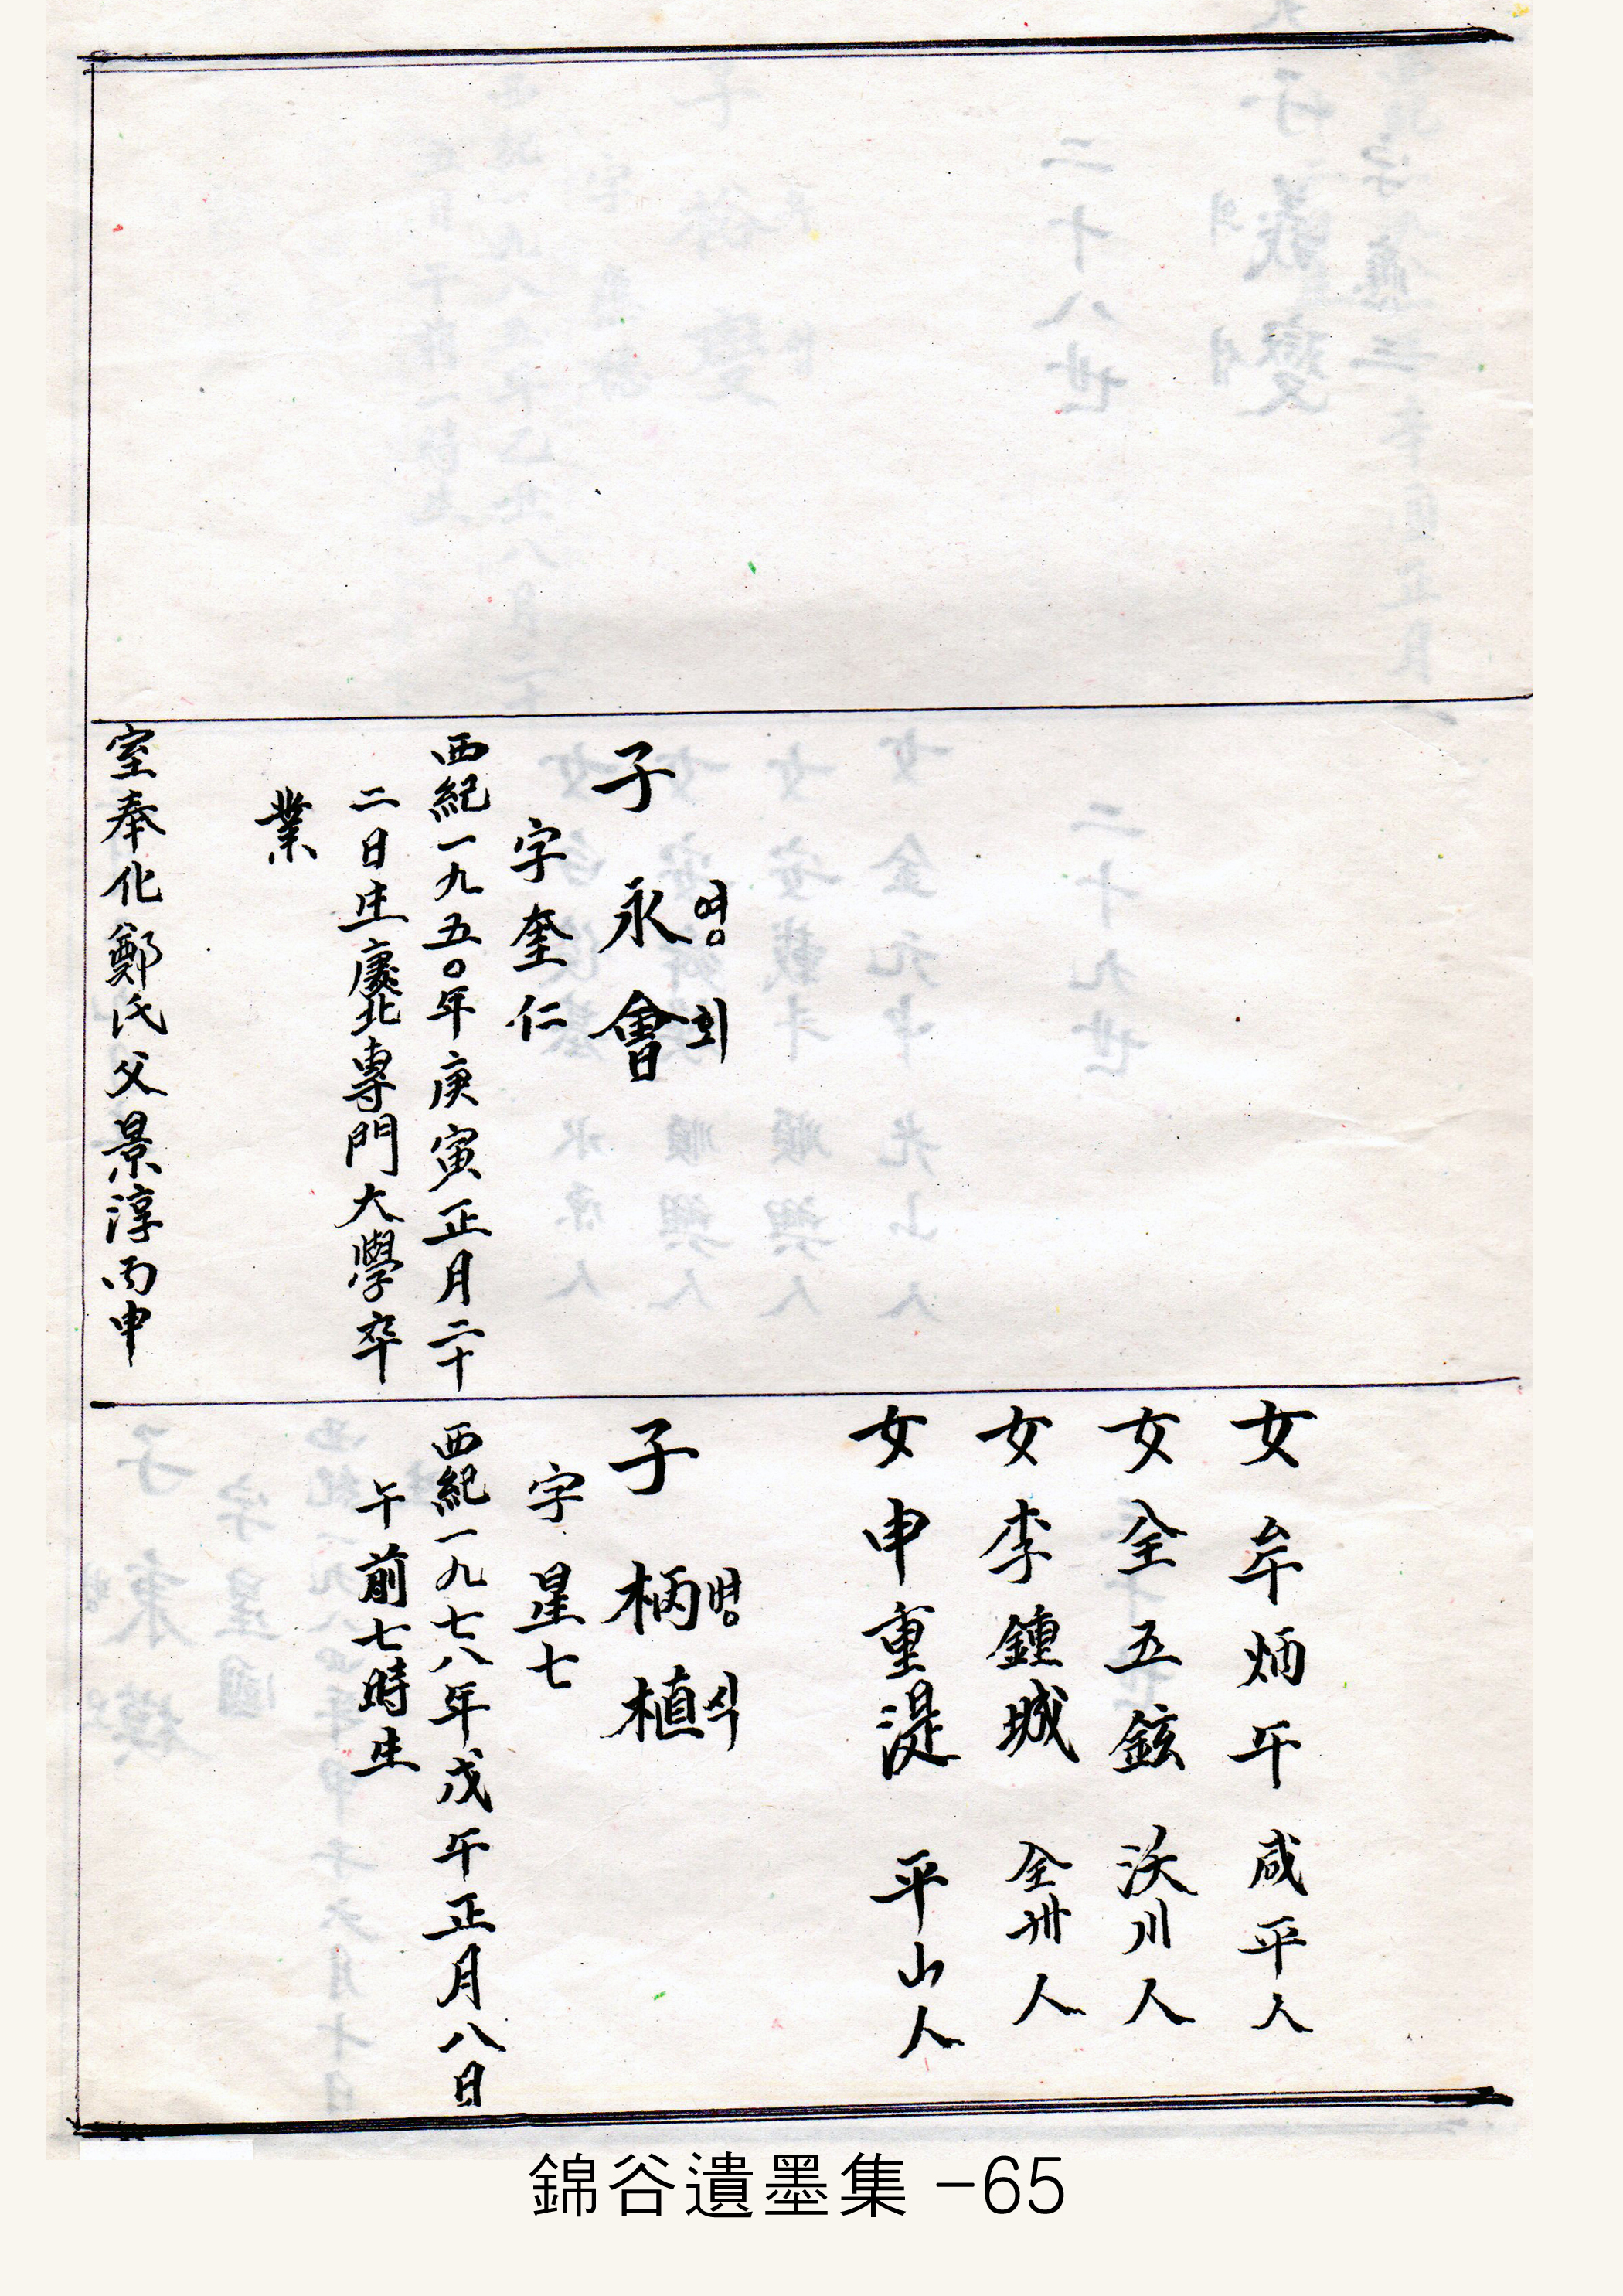 子 永영 會회
字 奎仁
西紀一九五〇年庚寅正月二十
二日生慶北專門大學卒
業
室奉化鄭氏父景淳丙申
女 牟炳午 咸平人
女 全五鉉 沃川人
女 李鍾城 全州人
女 申重湜 平山人
子 柄병 植식
字 星七
西紀一九七八年戊午正月八日
午前七時生
錦谷遺墨集 -65